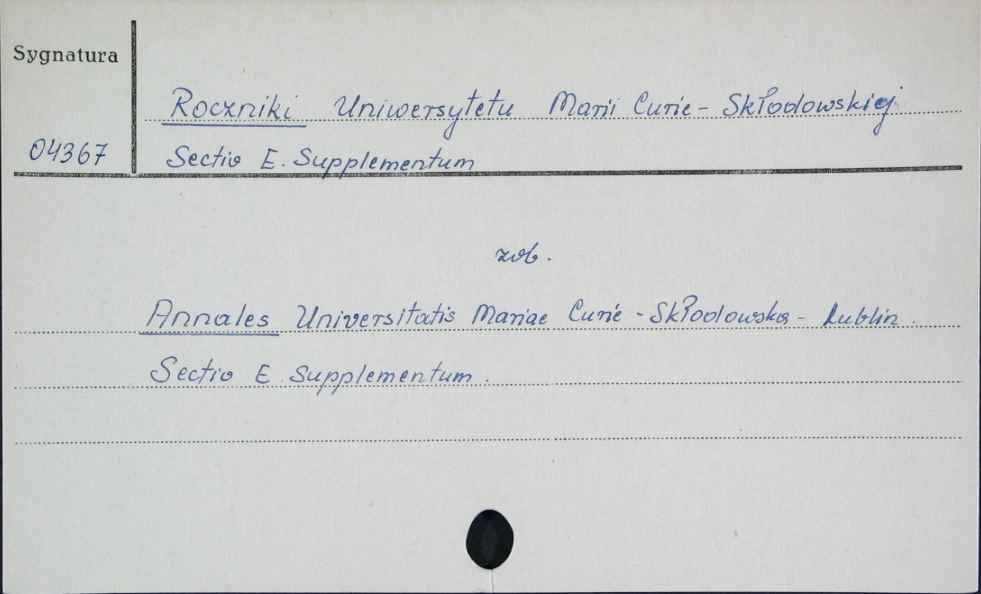 Sygnatura
Roczniki Uniwersytetu Marii Curie-Skłodowskiej
04367
Sectio E. Supplementum
zob.
Annales Universitatis Mariae Curie-Skłodowska - Lublin.
Sectio E Supplementum.